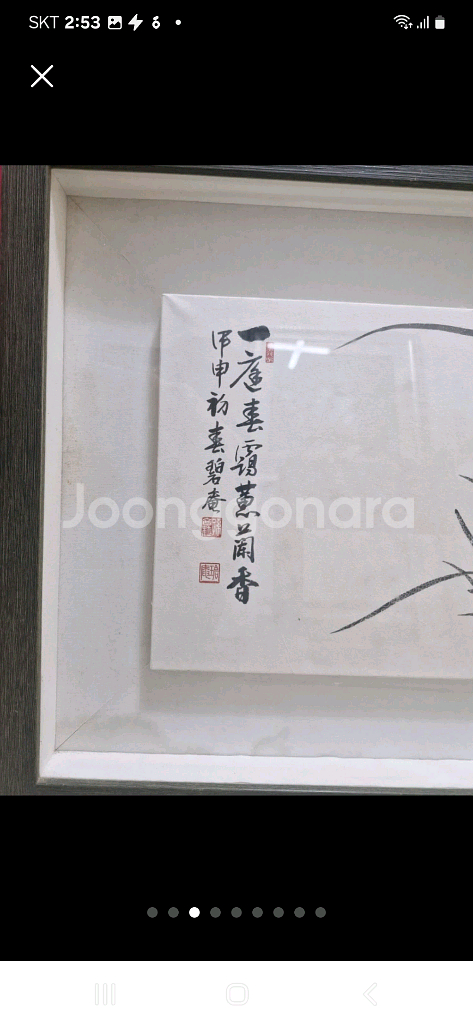 SKT 2:53
一庭春靄蕙蘭香
甲申初春碧菴
Joonggonara